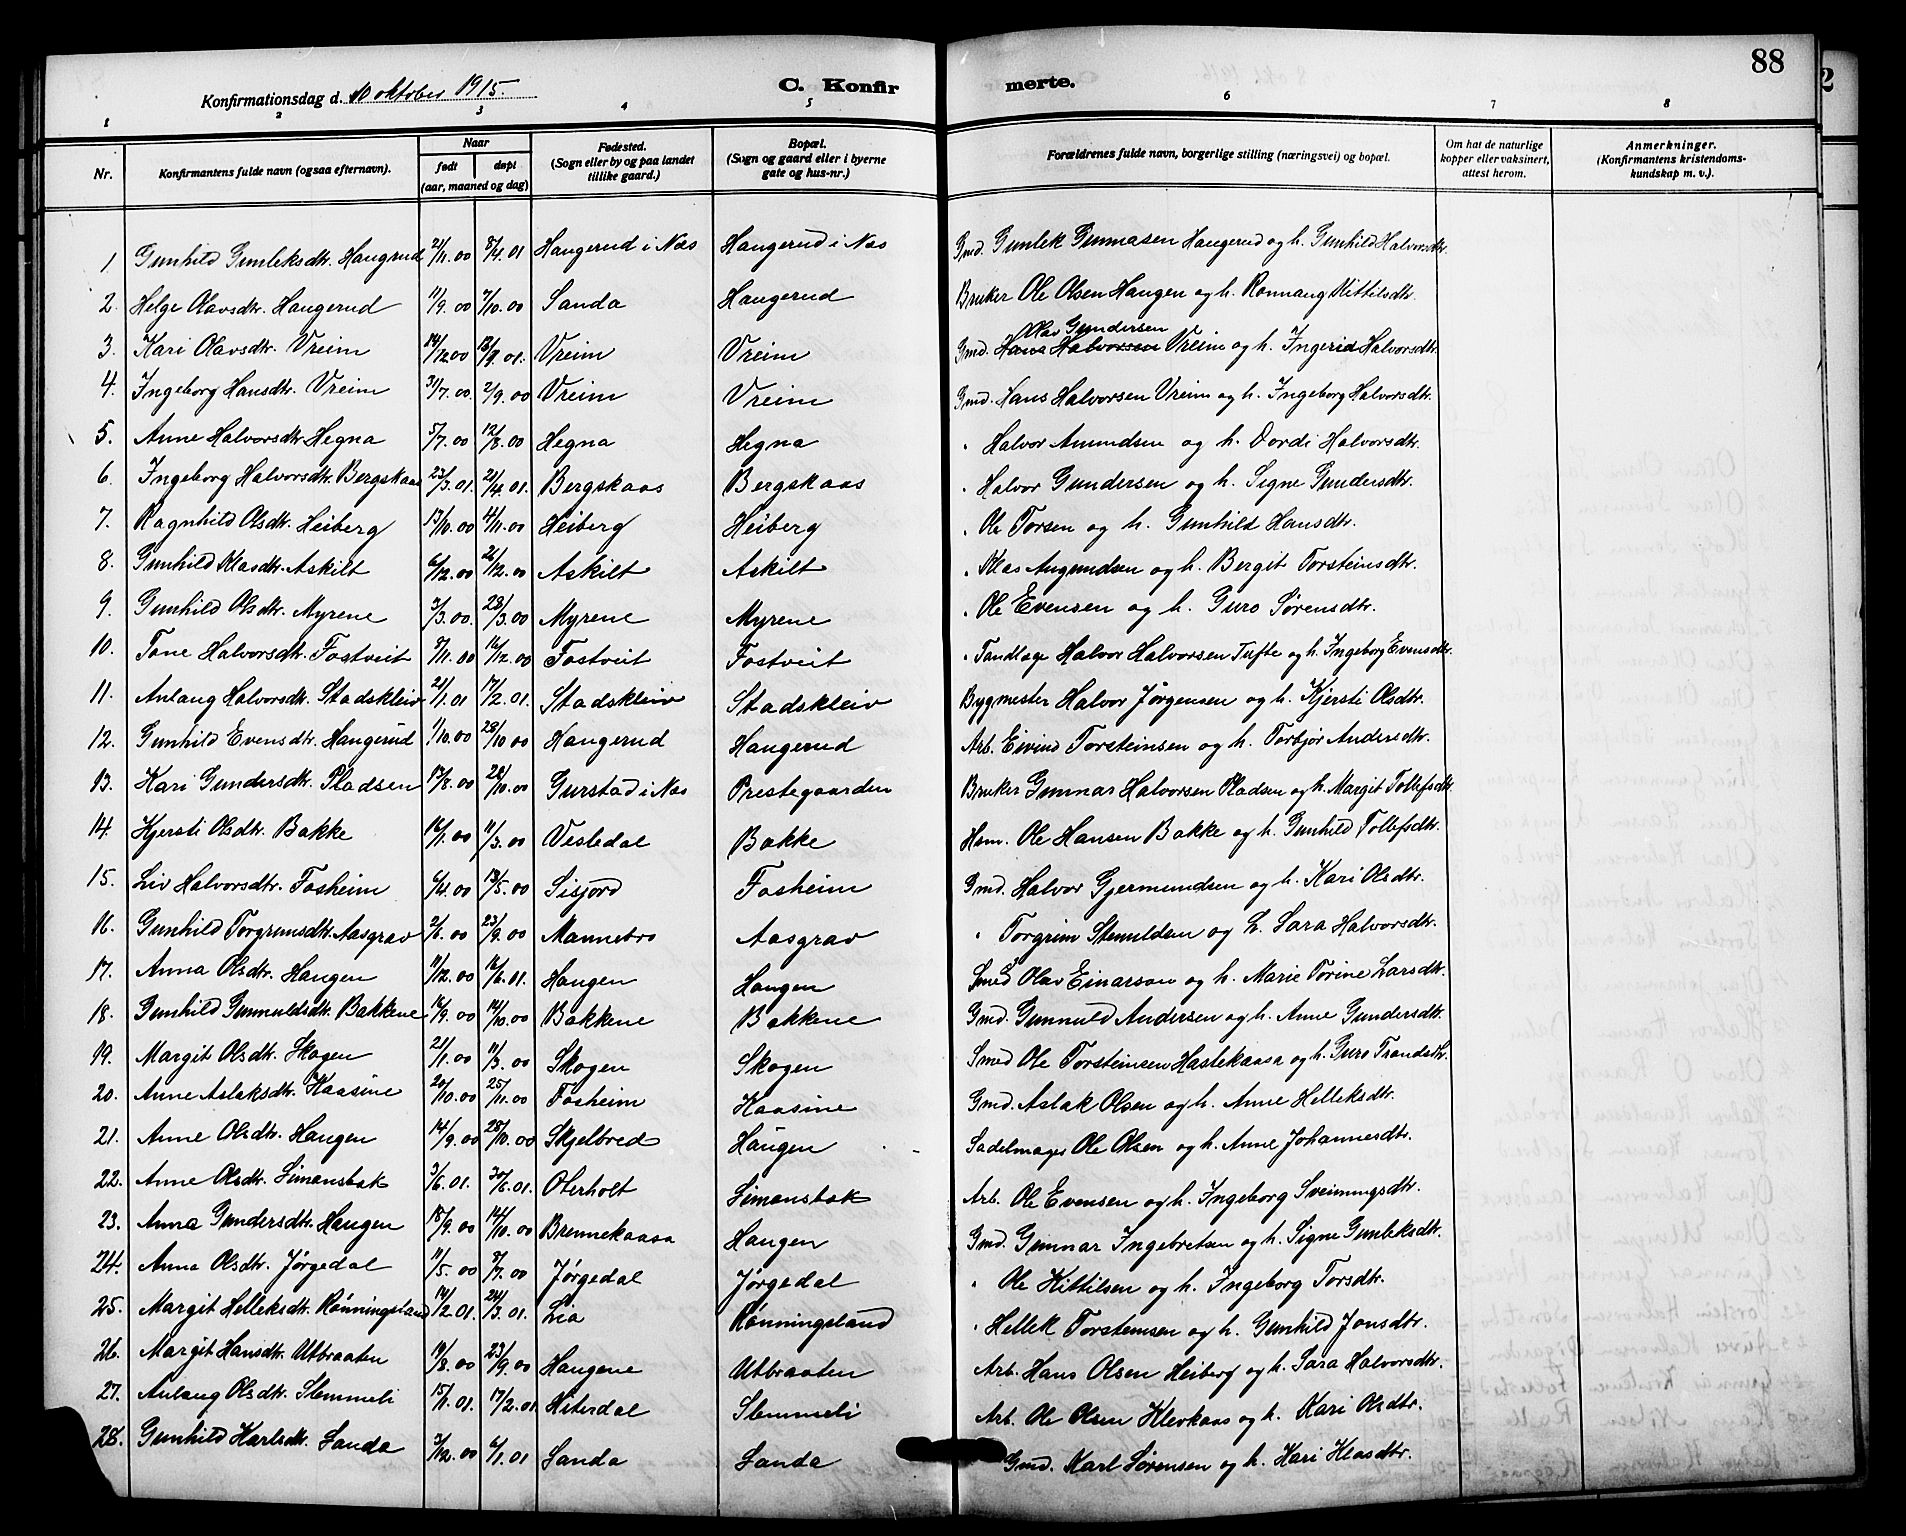 88
Konfirmationsdag d. 10 oktober 1915.
C. Konfirmerte.
1 2 3 4 5 6 7 8
Nr. Konfirmantens fulde navn (ogsaa efternavn). Naar født døpt (aar, maaned og dag) Fødested. (Sogn eller by og paa landet tillike gaard.) Bopæl. (Sogn og gaard eller i byerne gate og hus-nr.) Forældrenes fulde navn, borgerlige stilling (næringsvei) og bopæl. Om hat de naturlige kopper eller vaksinert, attest herom. Anmerkninger. (Konfirmantens kristendomskundskap m. v.).
1 Gunhild Gunleksdtr. Haugrud 21/11.00 8/4.01 Haugerud i Nes Haugerud i Nes Gmd. Gunlek Gunnasen Haugerud og h. Gunhild Halvorsdtr.
2. Helge Olavsdtr. Haugerud 11/9.00 7/10.00 Sanda Haugerud Bruker Ole Olsen Haugen og h. Rønnaug Kittilsdtr.
3. Kari Olavsdtr. Vreim 14/12 00 Vreim Vreim Gmd. Hans Halvorsen Olav Gundersen Vreim og h. Ingerid Halvorsdtr.
4. Ingeborg Hansdtr. Vreim 31/7.00 2/9.00 Vreim Vreim Gmd. Hans Halvorsen Vreim og h. Ingeborg Halvorsdtr.
5. Anne Halvorsdtr. Hegna 5/7.00 12/8.00 Hegna Hegna " Halvor Amundsen og h. Dordi Halvorsdtr.
6. Ingeborg Halvorsdtr. Bergskaas 23/3.01. 21/4.01. Bergskaas Bergskaas " Halvor Gundersen og h. Signe Gundersdtr.
7. Ragnhild Olsdtr. Heiberg 13/10.00 4/11.00 Heiberg Heiberg " Ole Torsen og h. Gunhild Hansdtr.
8. Gunhild Klasdtr. Askilt 6/12.00 26/12.00 Askilt Askilt " Klas Augundsen og h. Bergit Torsteinsdtr.
9. Gunhild Olsdtr. Myrene 3/3.00. 28/3.00 Myrene Myrene " Ole Evensen og h. Guro Sørensdtr.
10. Tone Halvorsdtr. Fostveit 7/11.00 16/12.00 Fostveit Fostveit " Tandlæge Halvor Halvorsen Tufte og h. Ingeborg Evensdtr.
11. Anlaug Halvorsdtr. Stadskleiv 21/1.01 17/2.01. Stadskleiv Stadskleiv Bygmester Halvor Jørgensen og h. Kjersti Olsdtr.
12. Gunhild Evensdtr. Haugerud 1/10.00 28/10 00 Haugerud Haugerud Arb. Eivind Torsteinsen og h. Torbjør Andersdtr.
13. Kari Gundersdtr. Pladsen 17/8.00 28/10.00 Gurstad i Nes Prestegaarden Bruker Gunnar Halvorsen Pladsen og h. Margit Tollefsdtr.
14. Kjersti Olsdtr. Bakke 16/1.00 11/3.00 Vesledal Bakke Ham. Ole Hansen Bakke og h. Gunhild Tollefsdtr.
15. Liv Halvorsdtr. Fosheim 6/4.00 13/5.00 Sisjord Fosheim Gmd. Halvor Gjermundsen og h. Kari Olsdtr.
16. Gunhild Torgrimsdtr. Aasgrav 2/6.00 23/9.00 Mannebro Aasgrav " Torgrim Stenuldsen og h. Sara Halvorsdtr.
17. Anna Olsdtr. Haugen 11/12.00 16/6.01. Haugen Haugen Smed Olav Einarson og h. Marie Torine Larsdtr.
18. Gunhild Gunnuldsdtr. Bakkene 16/9.00 14/10.00 Bakkene Bakkene Gmd. Gunnuld Andersen og h. Anne Gundersdtr.
19. Margit Olsdtr. Skogen 21/1.00 11/3.00 Skogen Skogen Smed Ole Torsteinsen Haslekaasa og h. Guro Trondsdtr.
20. Anne Aslaksdtr. Kaasine 20/10.00 25/11.00 Fosheim Kaasine Gmd. Aslak Olsen og h. Anne Helleksdtr.
21. Anne Olsdtr. Haugen 14/9.00 28/10.00 Skjelbred Haugen Sadelmager Ole Olsen og h. Anne Johannesdtr.
22. Anne Olsdtr. Simonsbak 3/6.01. 30/6.01. Oterholt Simonsbak Arb. Ole Evensen og h. Ingeborg Sveinungsdtr.
23. Anna Gundersdtr. Haugen 18/9.00 14/10.00 Brennekaasa Haugen Gmd. Gunnar Ingebretsen og h. Signe Gunleksdtr.
24. Anna Olsdtr. Jørgedal 11/5.00 7/7.00 Jørgedal Jørgedal " Ole Kittilsen og h. Ingeborg Torsdtr.
25. Margit Helleksdtr. Rønningsland 14/2.01 24/3.01. Lia Rønningsland " Hellek Torsteinsen og h. Gunhild Jonsdtr.
26. Margit Hansdtr. Utbraaten 19/8.00 23/9.00 Haugene Utbraaten Arb. Hans Olsen Heiberg og h. Sara Halvorsdtr.
27. Anlaug Olsdtr. Slemmeli 15/1.01. 17/2.01 Hiterdal Slemmeli Arb. Ole Olsen Klevkaas og h. Kari Olsdtr.
28. Gunhild Karlsdtr. Sanda 3/12.00 6/1.01 Sanda Sanda Gmd. Karl Sørensen og h. Kari Klasdtr.